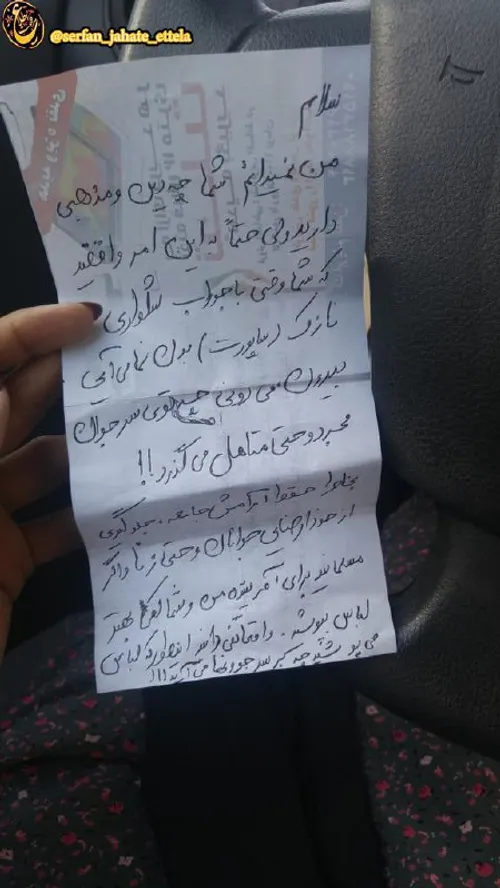 @serfan_jahate_ettela
سلام
من نمیدانم شما چه دین و مذهبی
دارید ولی حتماً به این امر واقفید
که شما وقتی با جوراب شلواری
نازک (ساپورت) بدن نما می آیی
بیرون می دونی چی توی سر جوان
مجرد و حتی متاهل می گذرد!!
بخاطر حفظ آرامش جامعه، جلوگیری
از خودارضایی جوانان و حتی زنا و اگر
مسلمانید برای آفریننده من و شما لطفا بهتر
لباس بپوشید. واقعا نمی دانید اینطور که لباس
می پوشید چه بر سر جوونها می آرید!!!